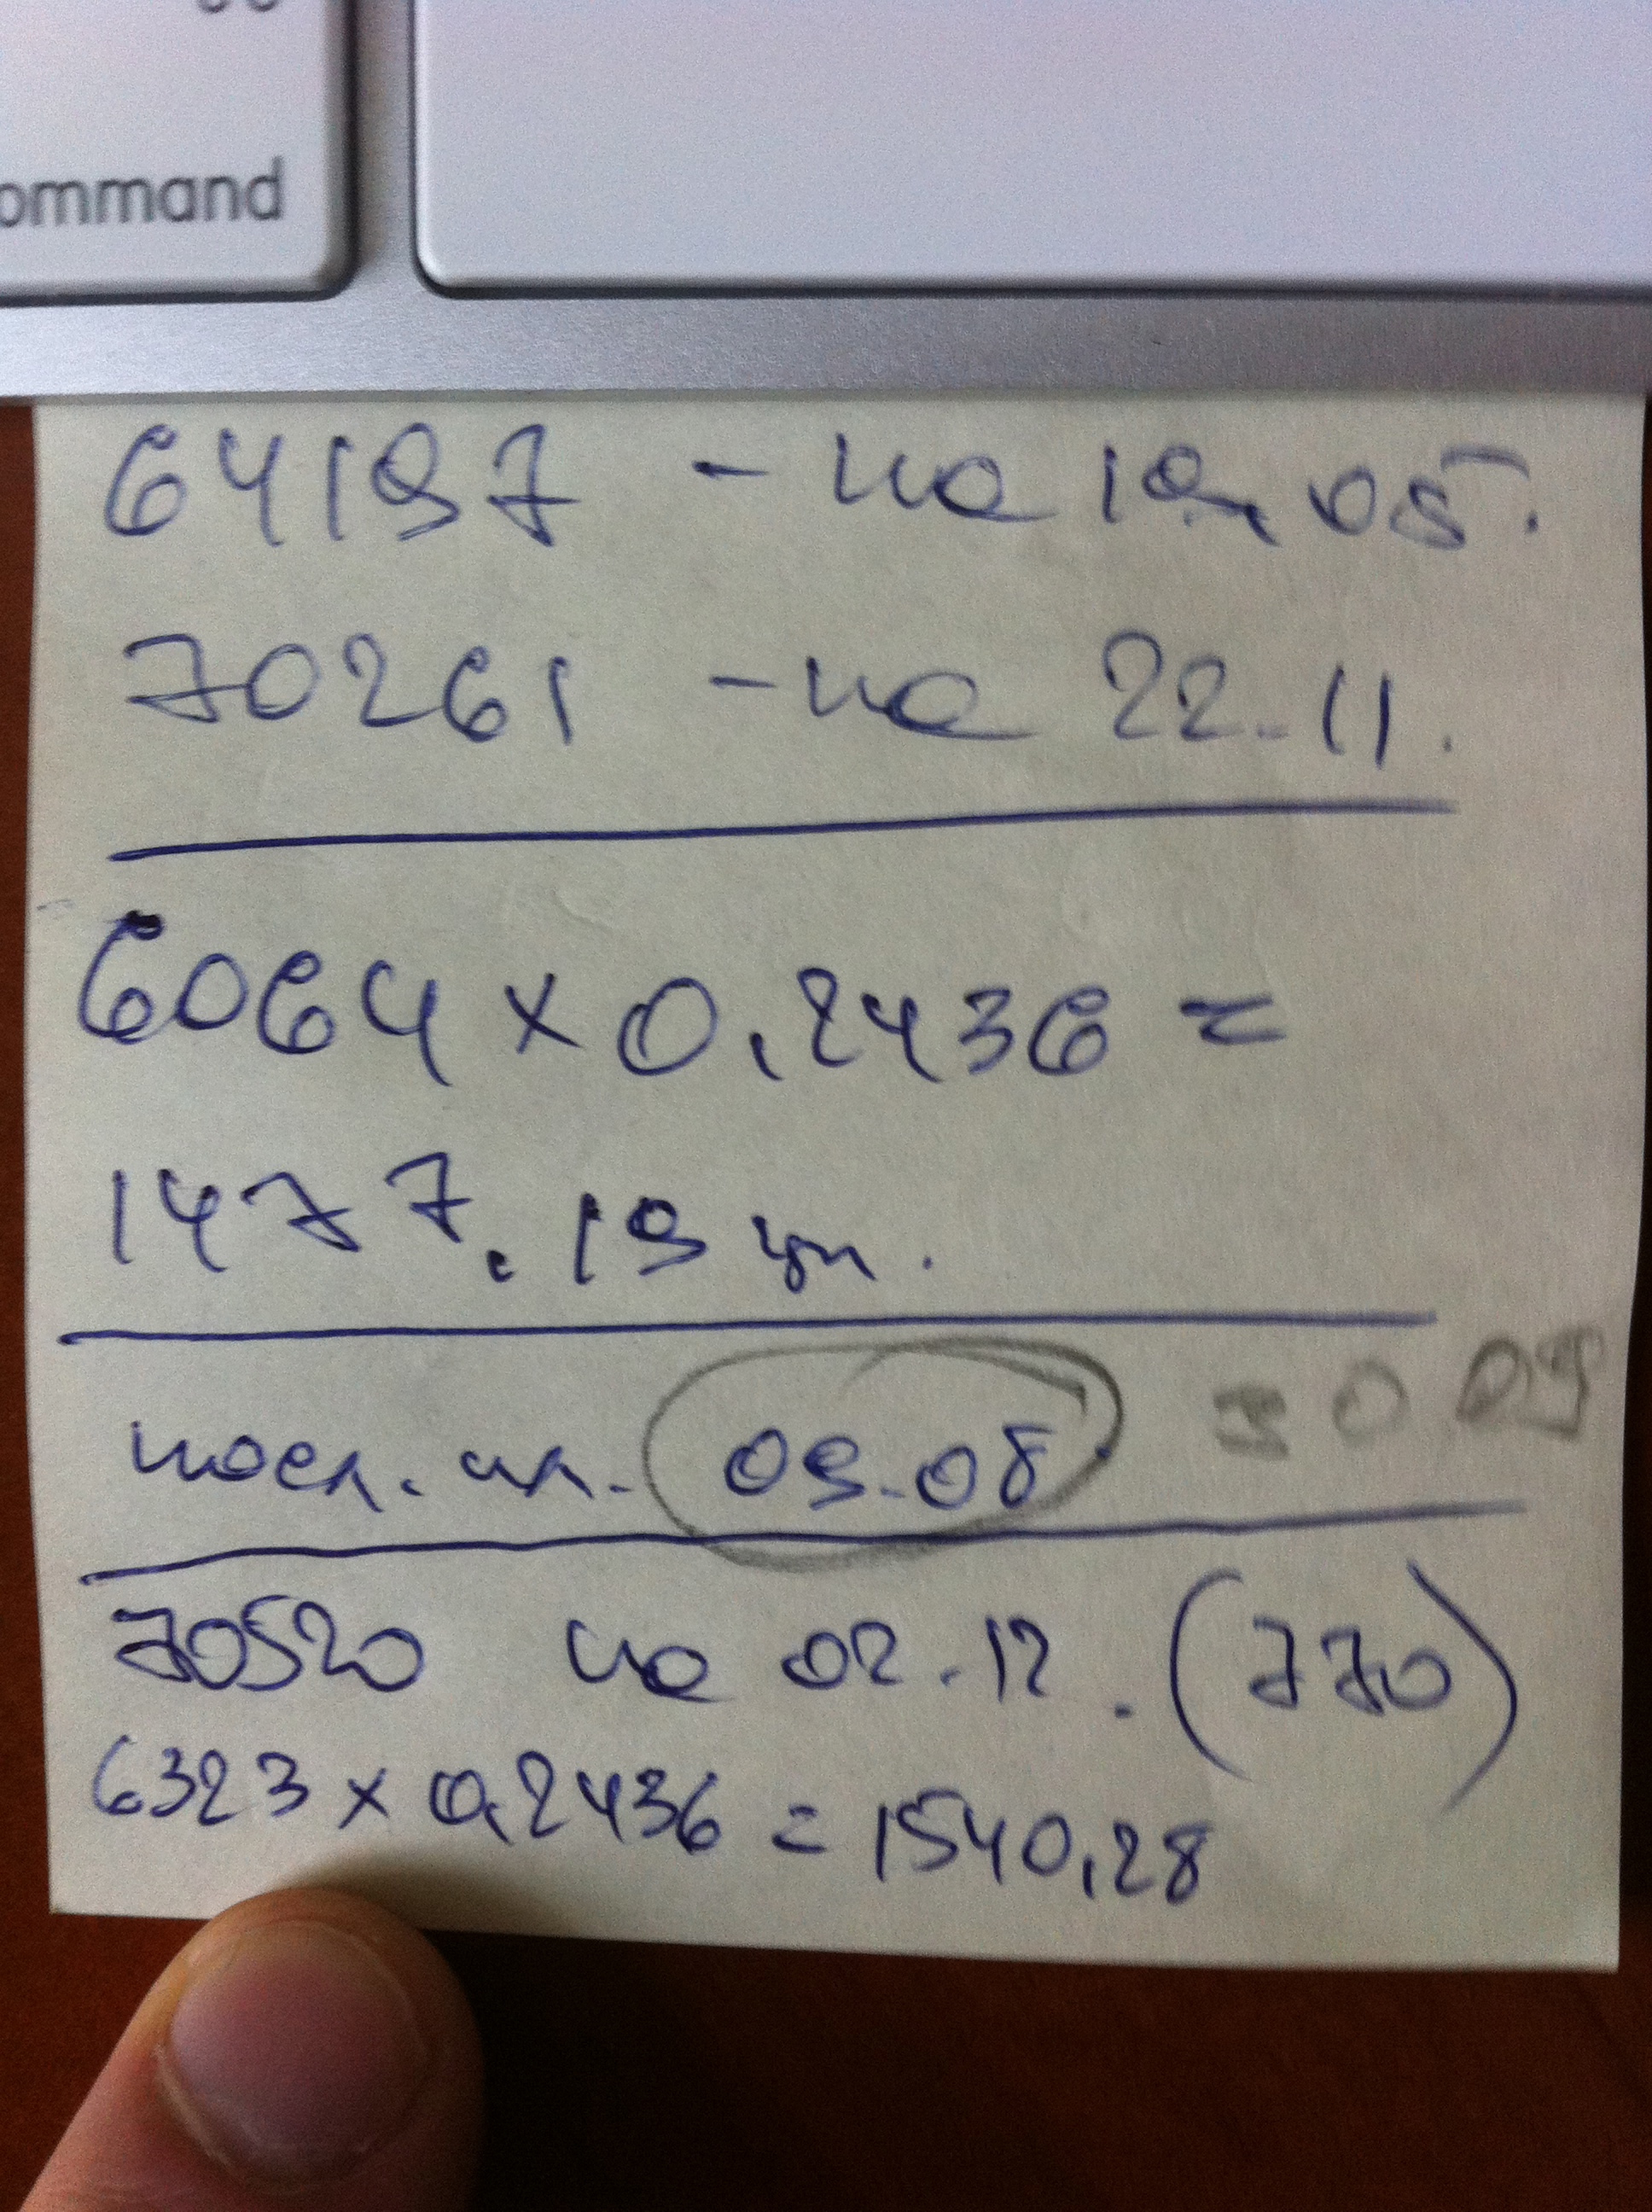 ommand
64197 - на 19.05.
70261 - на 22.11.
6064 x 0,2436 =
1477.19 грн.
посл. пл. 09.08. 30.09
70520 на 02.12. (770)
6323 x 0,2436 = 1540,28